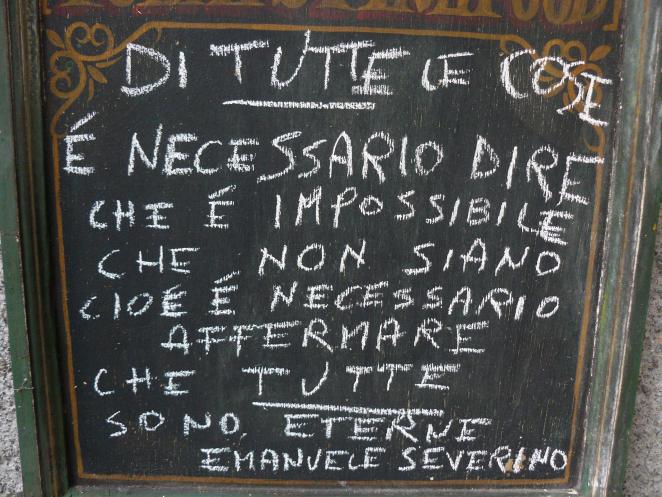 DI TUTTE LE COSE
É NECESSARIO DIRE
CHI É IMPOSSIBILE
CHE NON SIANO
CIOÉ É NECESSARIO
AFFERMARE
CHE TUTTE
SONO ETERNE
EMANUELE SEVERINO